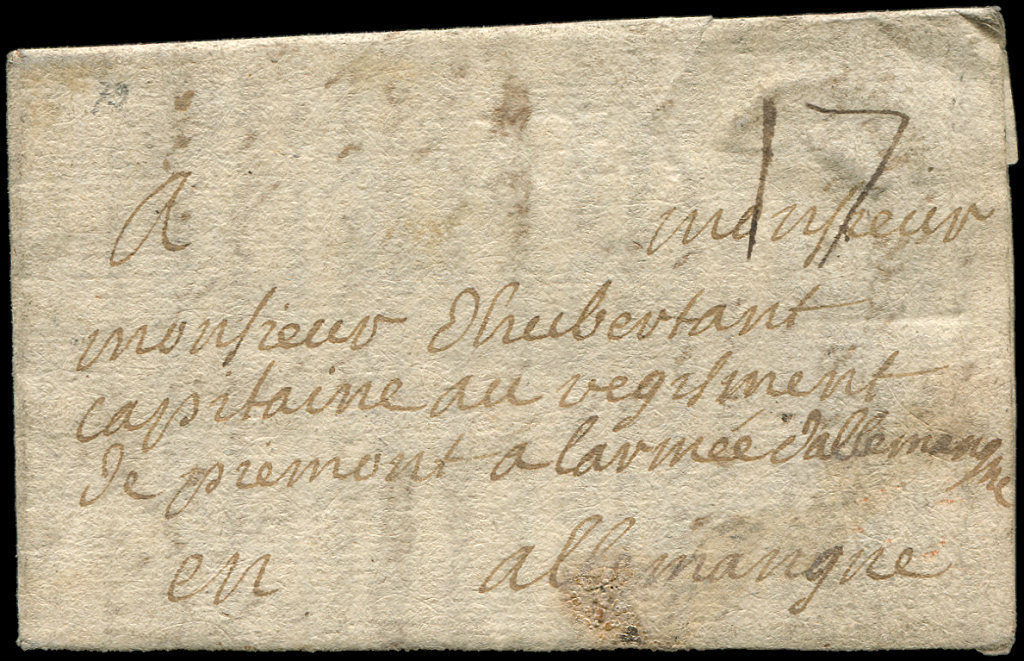 17
A monsieur
monsieur dhubertant
capitaine au regisment
de piemont a larmée dallemangne
en allemangne